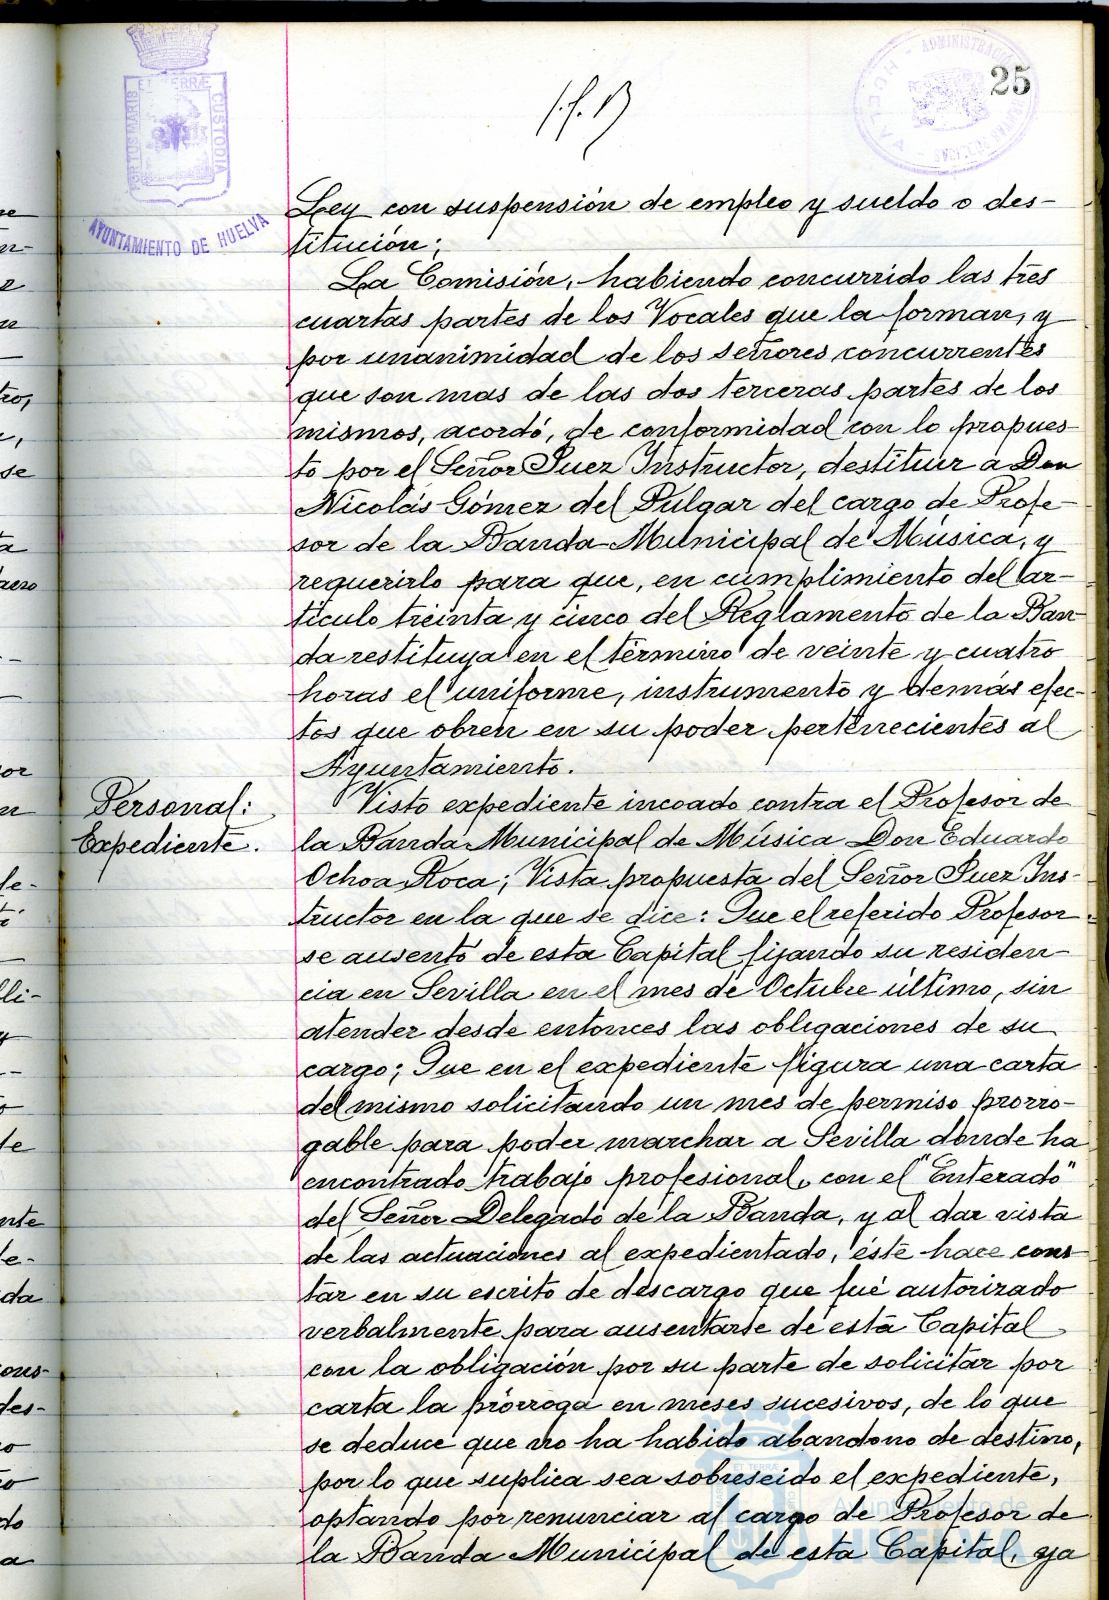 PORTUS MARIS ET TERRÆ CUSTODIA
AYUNTAMIENTO DE HUELVA
ADMINISTRACIÓN
HUELVA
25
Ley con suspensión de empleo y sueldo o des-
titución;
La Comisión, habiendo concurrido las tres
cuartas partes de los Vocales que la forman, y
por unanimidad de los señores concurrentes
que son mas de las dos terceras partes de los
mismos, acordó, de conformidad con lo propues-
to por el Señor Juez Instructor, destituir a Don
Nicolás Gómez del Pulgar del cargo de Profe-
sor de la Banda Municipal de Música, y
requerirlo para que, en cumplimiento del ar-
tículo treinta y cinco del Reglamento de la Ban-
da restituya en el término de veinte y cuatro
horas el uniforme, instrumento y demás efec-
tos que obren en su poder pertenecientes al
Ayuntamiento.
Personal:
Expediente.
Visto expediente incoado contra el Profesor de
la Banda Municipal de Música Don Eduardo
Ochoa Roca; Vista propuesta del Señor Juez Ins-
tructor en la que se dice: Que el referido Profesor
se ausentó de esta Capital fijando su residen-
cia en Sevilla en el mes de Octubre último, sin
atender desde entonces las obligaciones de su
cargo; Que en el expediente figura una carta
del mismo solicitando un mes de permiso prorro-
gable para poder marchar a Sevilla donde ha
encontrado trabajo profesional, con el "Enterado"
del Señor Delegado de la Banda, y al dar vista
de las actuaciones al expedientado, éste hace cons-
tar en su escrito de descargo que fué autorizado
verbalmente para ausentarse de esta Capital
con la obligación por su parte de solicitar por
carta la prórroga en meses sucesivos, de lo que
se deduce que no ha habido abandono de destino,
por lo que suplica sea sobreseido el expediente,
optando por renunciar al cargo de Profesor de
la Banda Municipal de esta Capital, ya
Ayuntamiento de
HUELVA